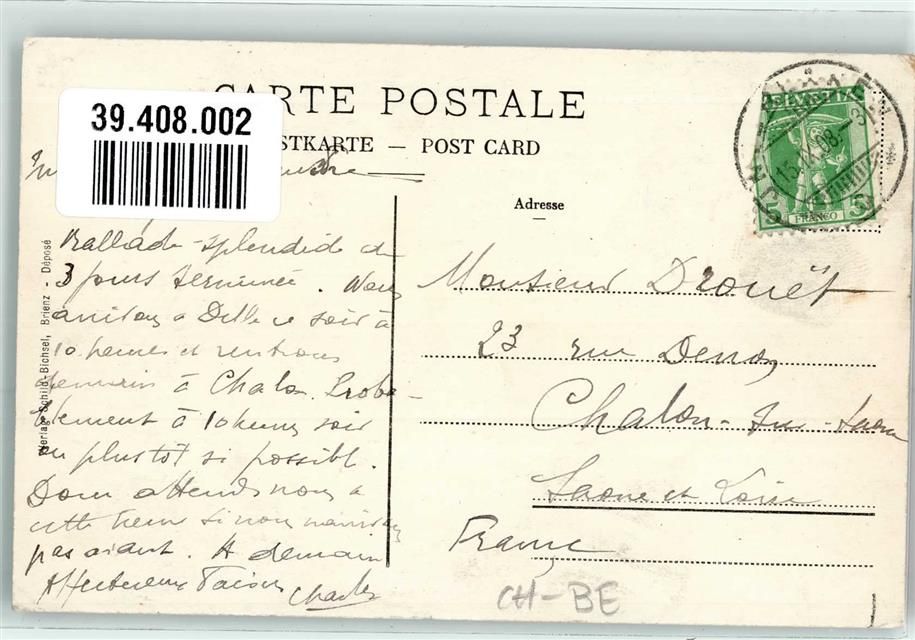 CARTE POSTALE
39.408.002
POSTKARTE — POST CARD
Adresse
HELVETIA
FRANCO
5 5
Verlag Schild-Bichsel, Brienz - Déposé
Ballade splendide de
3 jours terminée. Nous
arrivons à Delle ce soir à
10 heures et rentrons
demain à Chalon. Proba-
blement à 10 heures soir
ou plustôt si possible.
Donc attends nous à
cette heure si nous
pas avant. A demain
Affectueux Charles
Monsieur Drouët
23 rue Denon
Chalon-sur-Saone
Saone et Loire
France
CH-BE